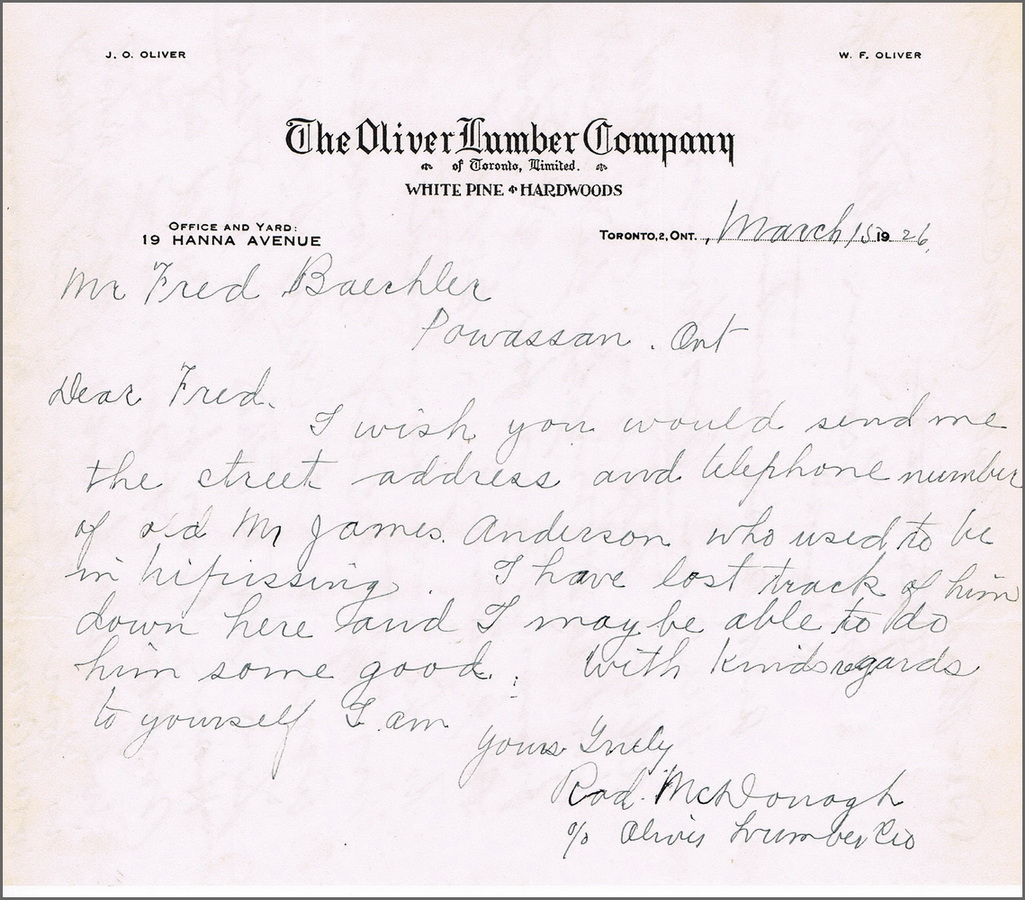 J. O. OLIVER
W. F. OLIVER
The Oliver Lumber Company
of Toronto, Limited.
WHITE PINE & HARDWOODS
OFFICE AND YARD:
19 HANNA AVENUE
TORONTO, 2, ONT., March 15 1926.
Mr Fred Baechler
Powassan. Ont
Dear Fred.
I wish you would send me
the street address and telephone number
of old Mr James. Anderson who used to be
in Nipissing. I have lost track of him
down here and I maybe able to do
him some good. With Kinds regards
to yourself I am
yours Truly
Rod. McDonogh
c/o Oliver Lumber Co